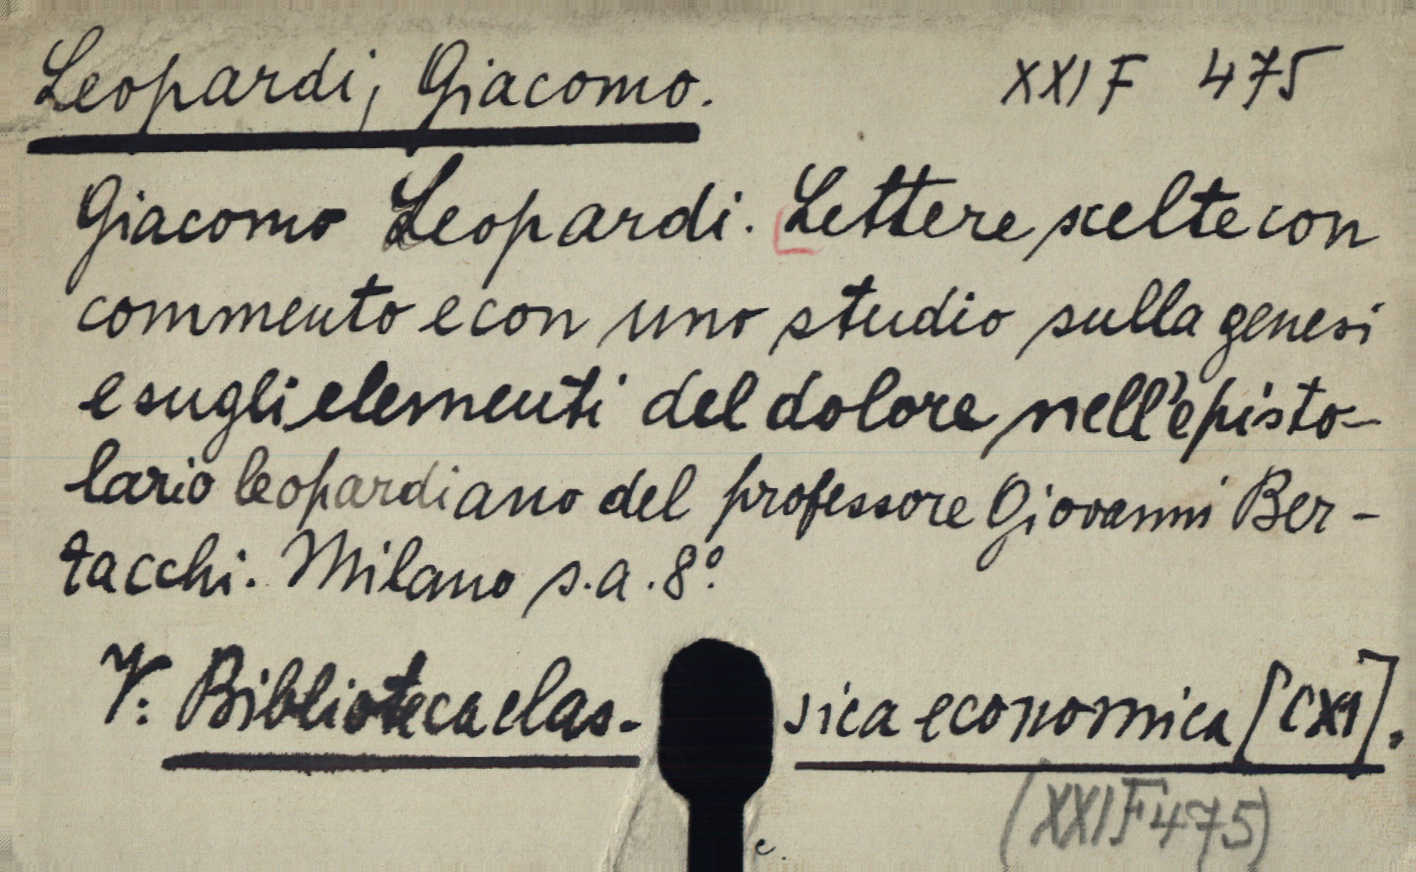 Leopardi, Giacomo. XXI F 475
Giacomo Leopardi. Lettere scelte con
commento e con uno studio sulla genesi
e sugli elementi del dolore nell'episto-
lario leopardiano del professore Giovanni Ber-
tacchi. Milano s.a. 8°.
V: Biblioteca clas- sica economica [CXI].
(XXI F 475)
c.